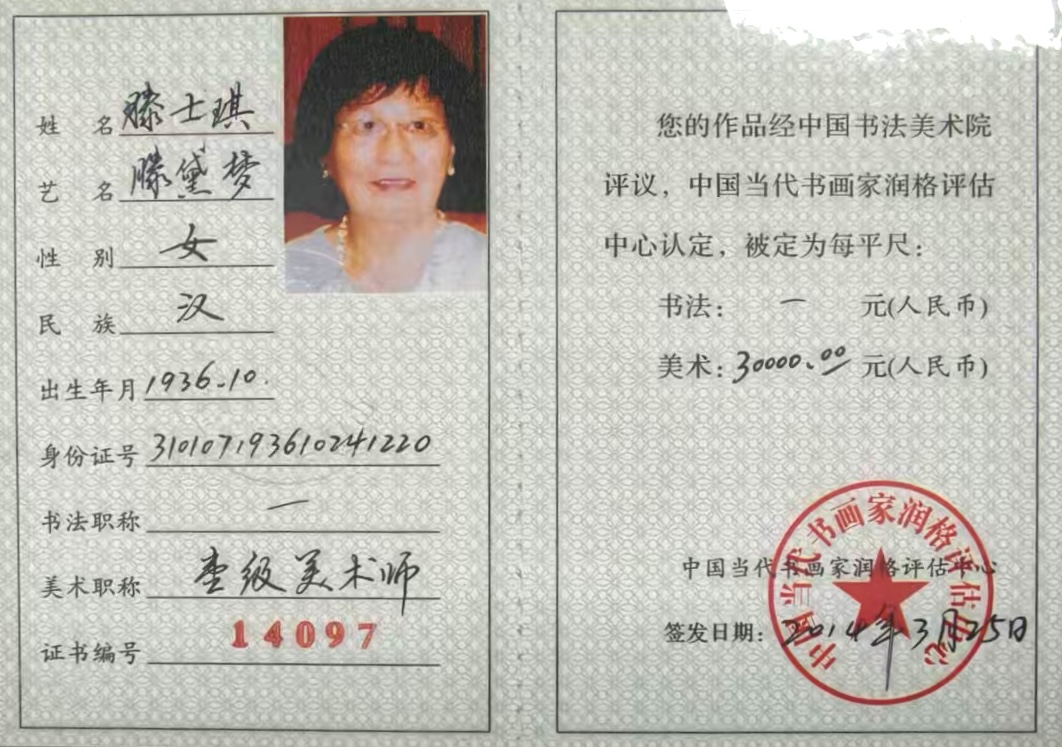 姓 名 滕士琪
艺 名 滕黛梦
性 别 女
民 族 汉
出生年月 1936.10.
身份证号 310107193610241220
书法职称 一
美术职称 壹级美术师
证书编号 14097
您的作品经中国书法美术院
评议，中国当代书画家润格评估
中心认定，被定为每平尺：
书法： 一 元(人民币)
美术：30000.00 元(人民币)
中国当代书画家润格评估中心
签发日期：2014年3月25日
中国当代书画家润格评估中心